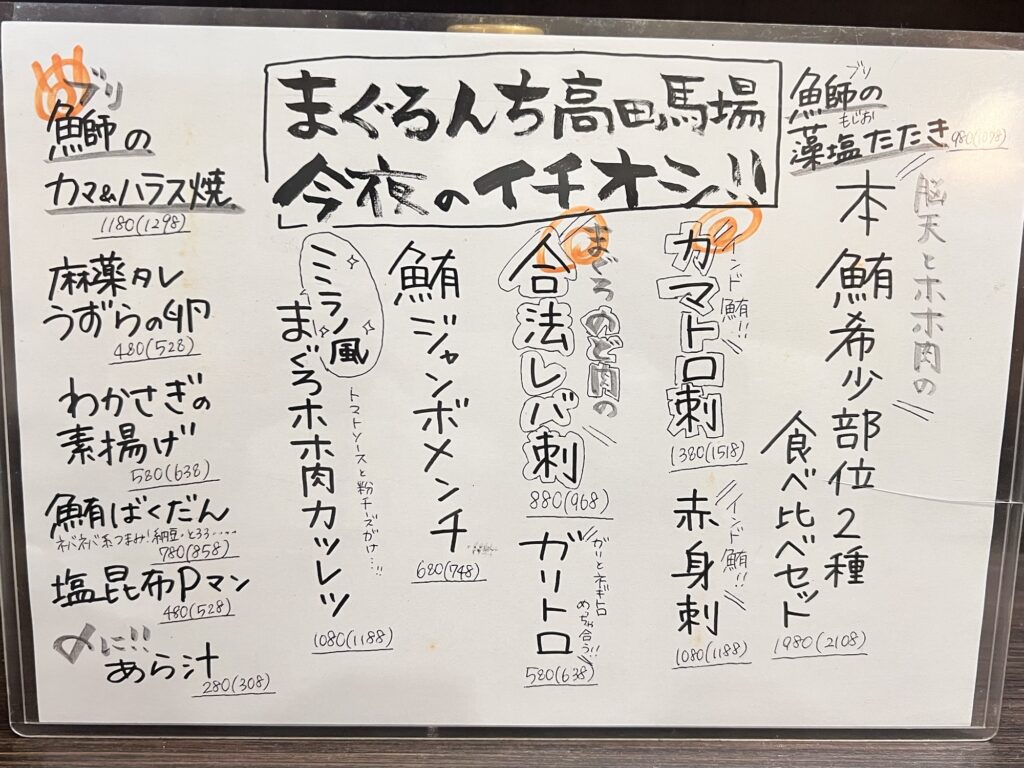 まぐろんち高田馬場
今夜のイチオシ!!
ブリ
鰤の
もじお
藻塩たたき
980(1078)
脳天とホホ肉の
本鮪希少部位2種
食べ比べセット
1980(2108)
インド鮪!!
カマトロ刺
1380(1518)
インド鮪!!
赤身刺
1080(1188)
まぐろのど肉の
合法レバ刺
880(968)
ガリトロ
ガリとネギトロ
めっちゃ合う!!
580(638)
鮪ジャンボメンチ
680(748)
ミミラノ風
まぐろホホ肉カツレツ
トマトソースと粉チーズがけ…!!
1080(1188)
ブリ
鰤の
カマ&ハラス焼
1180(1298)
麻薬タレ
うずらの卵
480(528)
わかさぎの
素揚げ
580(638)
鮪ばくだん
ネバネバ系つまみ!納豆・とろろ・・・・・
780(858)
塩昆布Pマン
480(528)
〆に!!
あら汁
280(308)